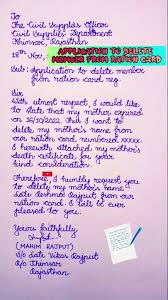 To
The Civil Supplies Officer
Civil Supplies Department
Khimsar, Rajasthan
18th Nov.
APPLICATION TO DELETE
MEMBER FROM RATION CARD
Sub: Application to delete member
from ration card reg.
Sir
With utmost respect, I would like
to state that my mother expired
on 26/10/2022. Thus I want to
delete my mother's name from
our ration card numbered xxxxx
I herewith attached my mother's
death certificate for your
kind consideration.
Therefore, I humbly request you
to delete my mother's name
Late Reshma Rajput from our
ration card. I will be ever
pleased to you.
Yours faithfully
(MAHIM RAJPUT)
S/O Late Vikas Rajput
R/O Khimsar
Rajasthan